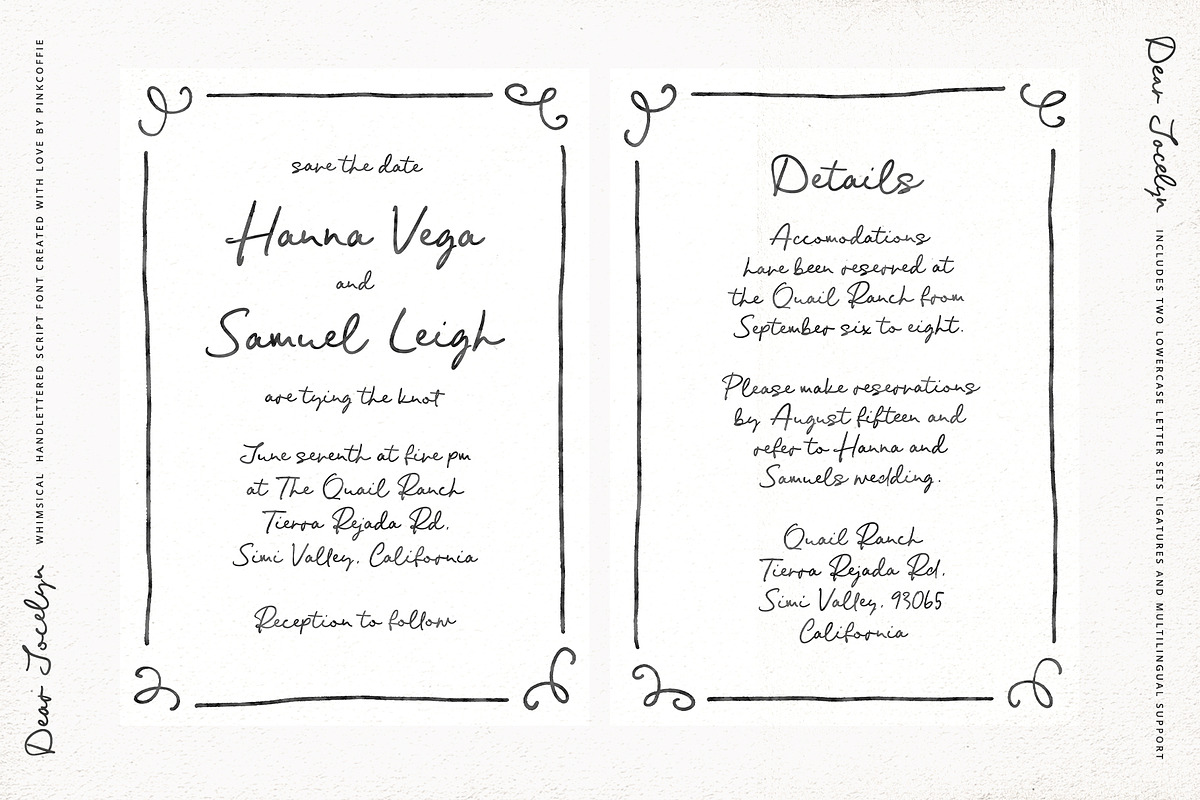 Dear Jocelyn WHIMSICAL HANDLETTERED SCRIPT FONT CREATED WITH LOVE BY PINKCOFFIE
save the date
Hanna Vega
and
Samuel Leigh
are tying the knot
June seventh at five pm
at The Quail Ranch
Tierra Rejada Rd.
Simi Valley, California
Reception to follow
Details
Accomodations
have been reserved at
the Quail Ranch from
September six to eight.
Please make reservations
by August fifteen and
refer to Hanna and
Samuels wedding.
Quail Ranch
Tierra Rejada Rd.
Simi Valley, 93065
California
Dear Jocelyn INCLUDES TWO LOWERCASE LETTER SETS LIGATURES AND MULTILINGUAL SUPPORT